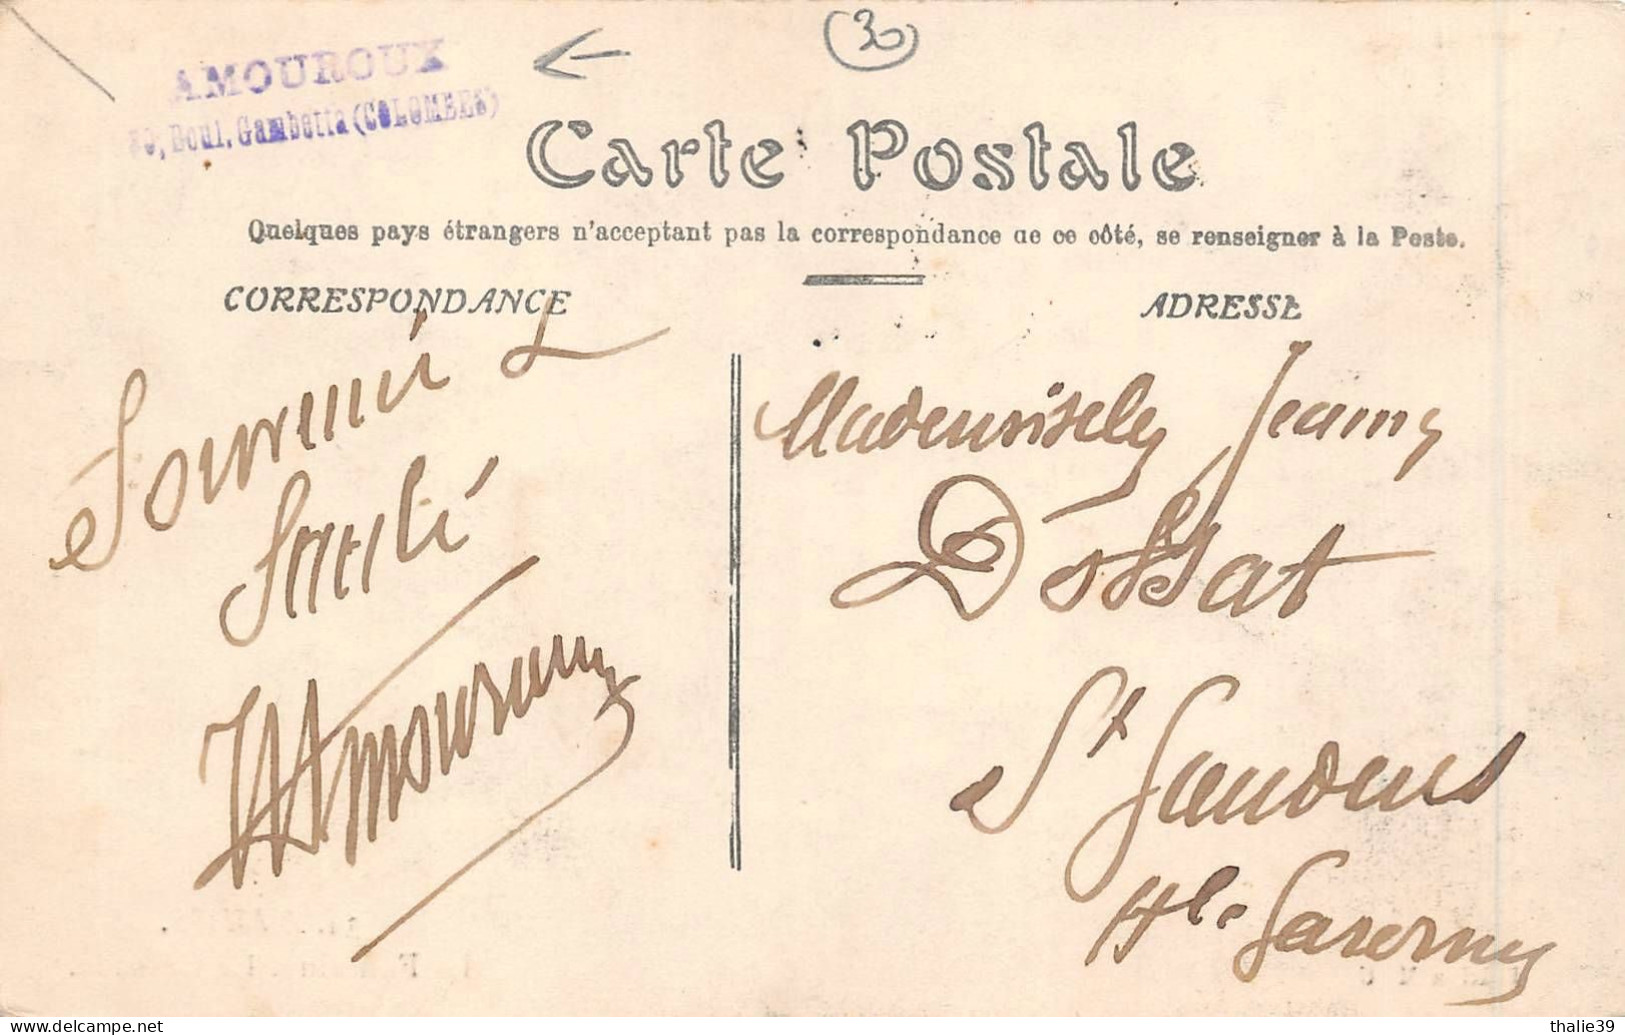 30
AMOUROUX
Boul. Gambetta (COLOMBES)
Carte Postale
Quelques pays étrangers n'acceptant pas la correspondance de ce côté, se renseigner à la Poste.
CORRESPONDANCE
Souvenir &
Santé
Amouroux
ADRESSE
Mademoiselle Jeanne
Dossat
St Gaudens
Hte Garonne
thalie39